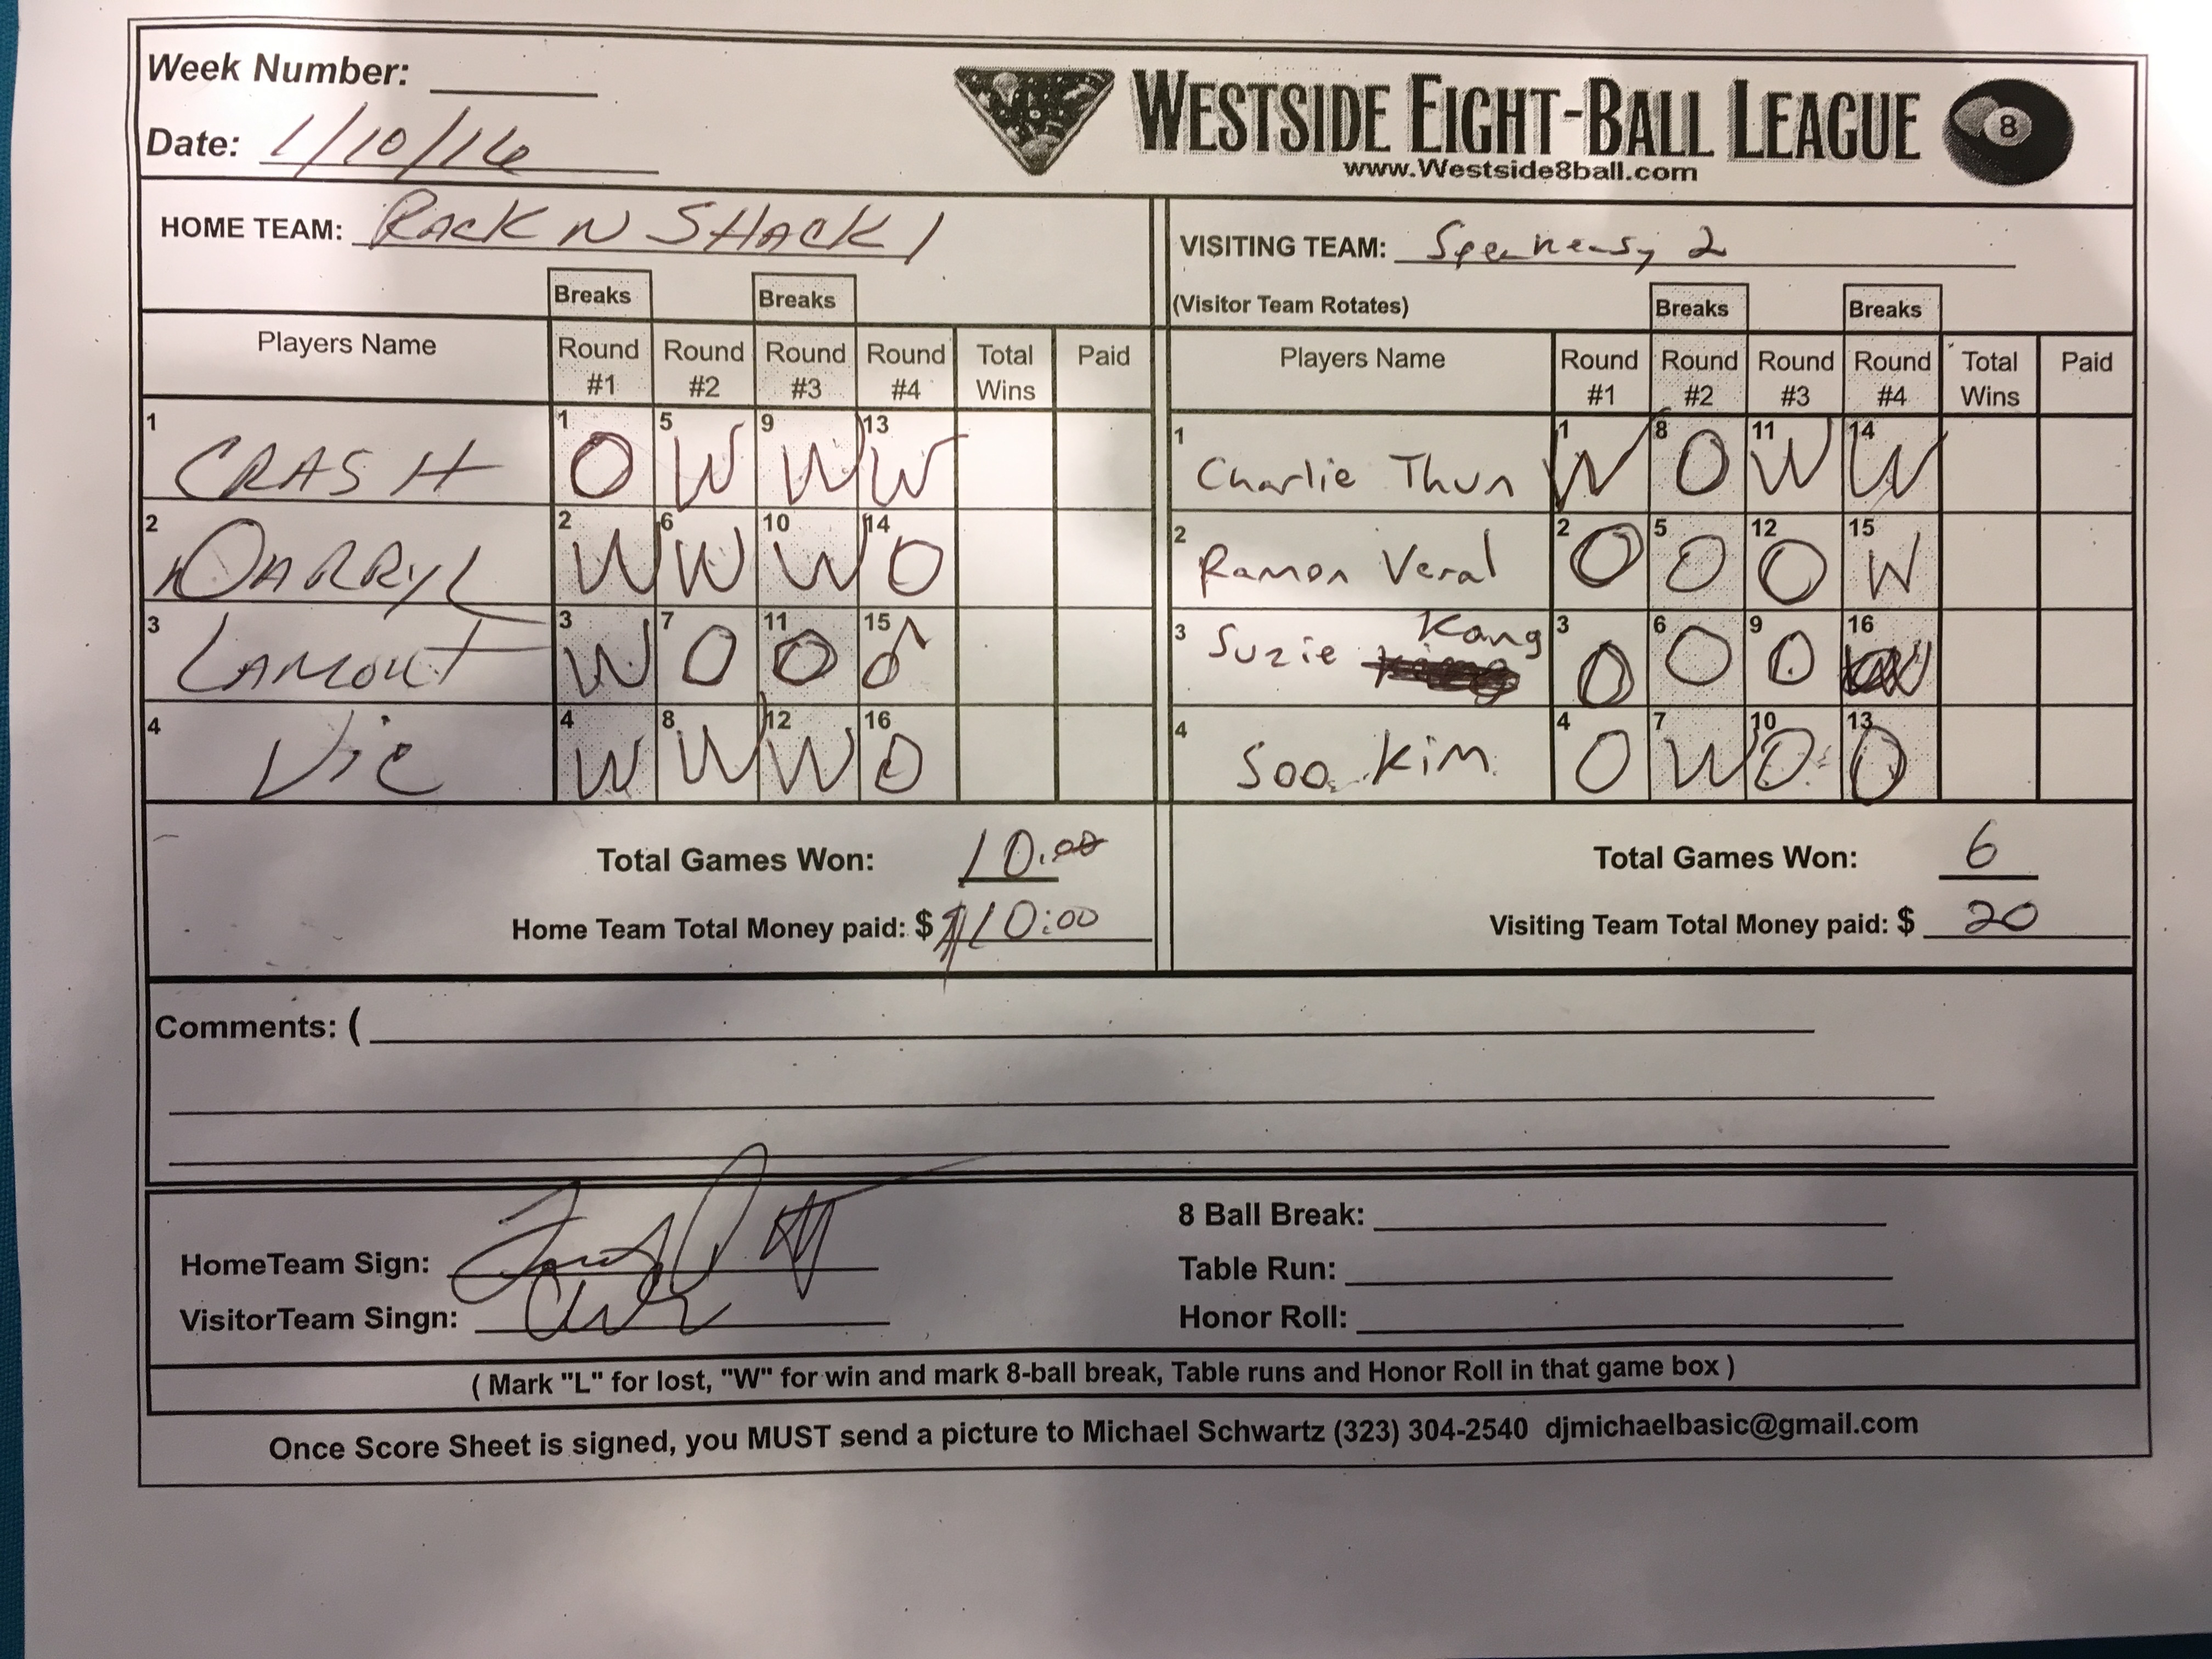 Week Number:
Date: 1/10/16
WESTSIDE EIGHT-BALL LEAGUE 8
www.Westside8ball.com
HOME TEAM: RACK N SHACK 1
VISITING TEAM: Speakeasy 2
Breaks Breaks
(Visitor Team Rotates) Breaks Breaks
Players Name Round #1 Round #2 Round #3 Round #4 Total Wins Paid
1 CRASH 1 O 5 W 9 W 13 W
2 DARRYL 2 W 6 W 10 W 14 O
3 LAMONT 3 W 7 O 11 O 15 O
4 Vic 4 W 8 W 12 W 16 O
Players Name Round #1 Round #2 Round #3 Round #4 Total Wins Paid
1 Charlie Thun 1 W 8 O 11 W 14 W
2 Ramon Veral 2 O 5 O 12 O 15 W
3 Suzie Kang 3 O 6 O 9 O 16 W
4 Soo Kim 4 O 7 W 10 O 13 O
Total Games Won: 10.00
Home Team Total Money paid: $ $10:00
Total Games Won: 6
Visiting Team Total Money paid: $ 20
Comments: (
HomeTeam Sign:
VisitorTeam Singn:
8 Ball Break:
Table Run:
Honor Roll:
( Mark "L" for lost, "W" for win and mark 8-ball break, Table runs and Honor Roll in that game box )
Once Score Sheet is signed, you MUST send a picture to Michael Schwartz (323) 304-2540 djmichaelbasic@gmail.com